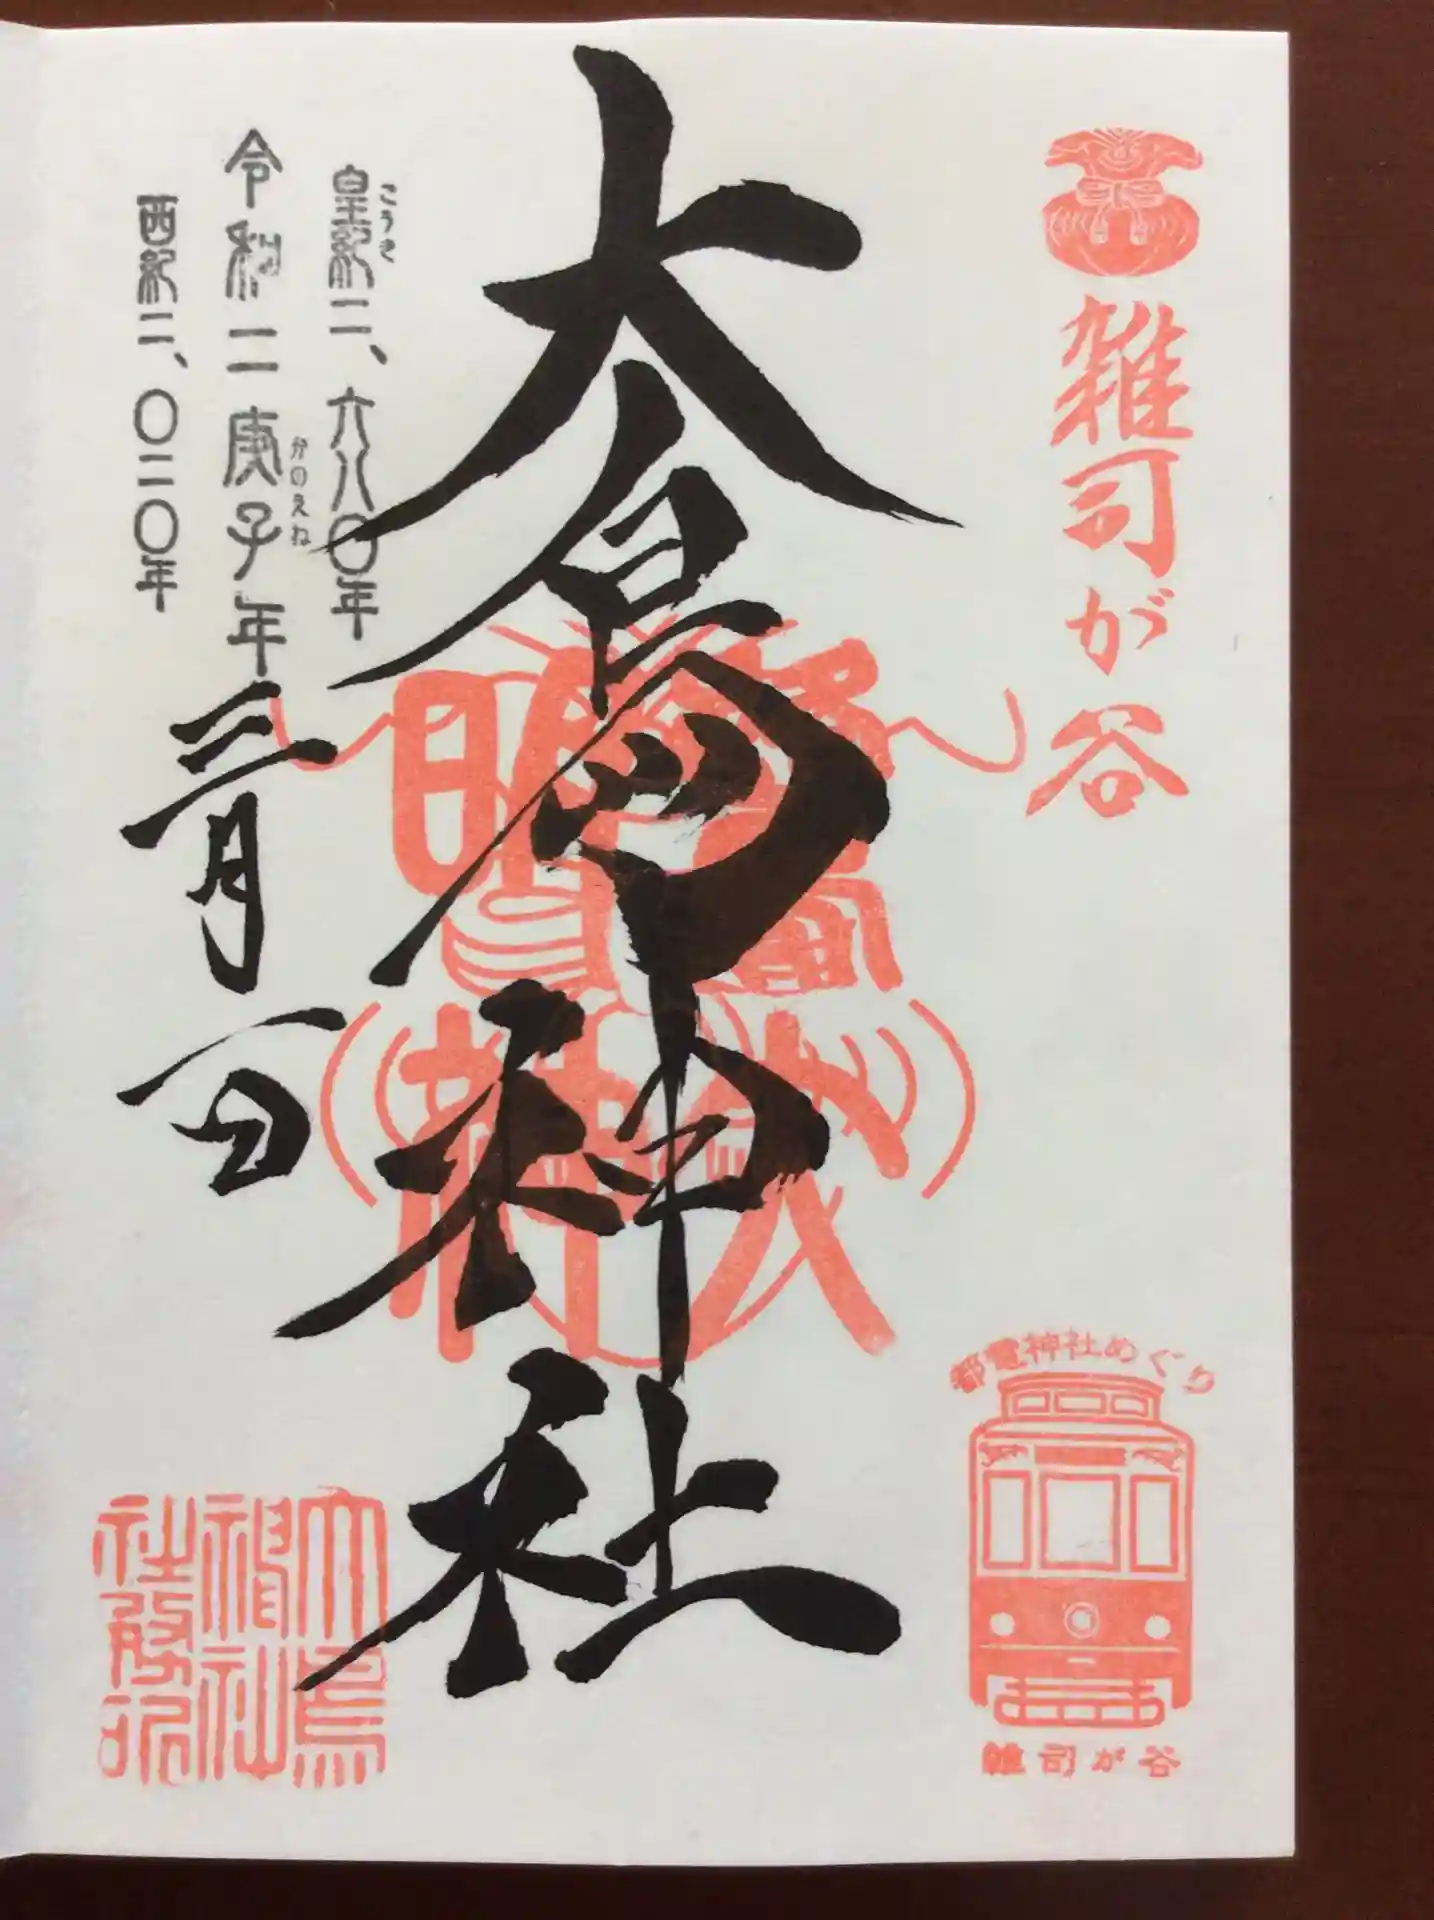 雑司が谷
都電神社めぐり
雑司が谷
大鳥神社
こうき
皇紀二、六八〇年
令和二庚子年三月一日
かのえね
西紀二、〇二〇年
大鳥神社
社務所